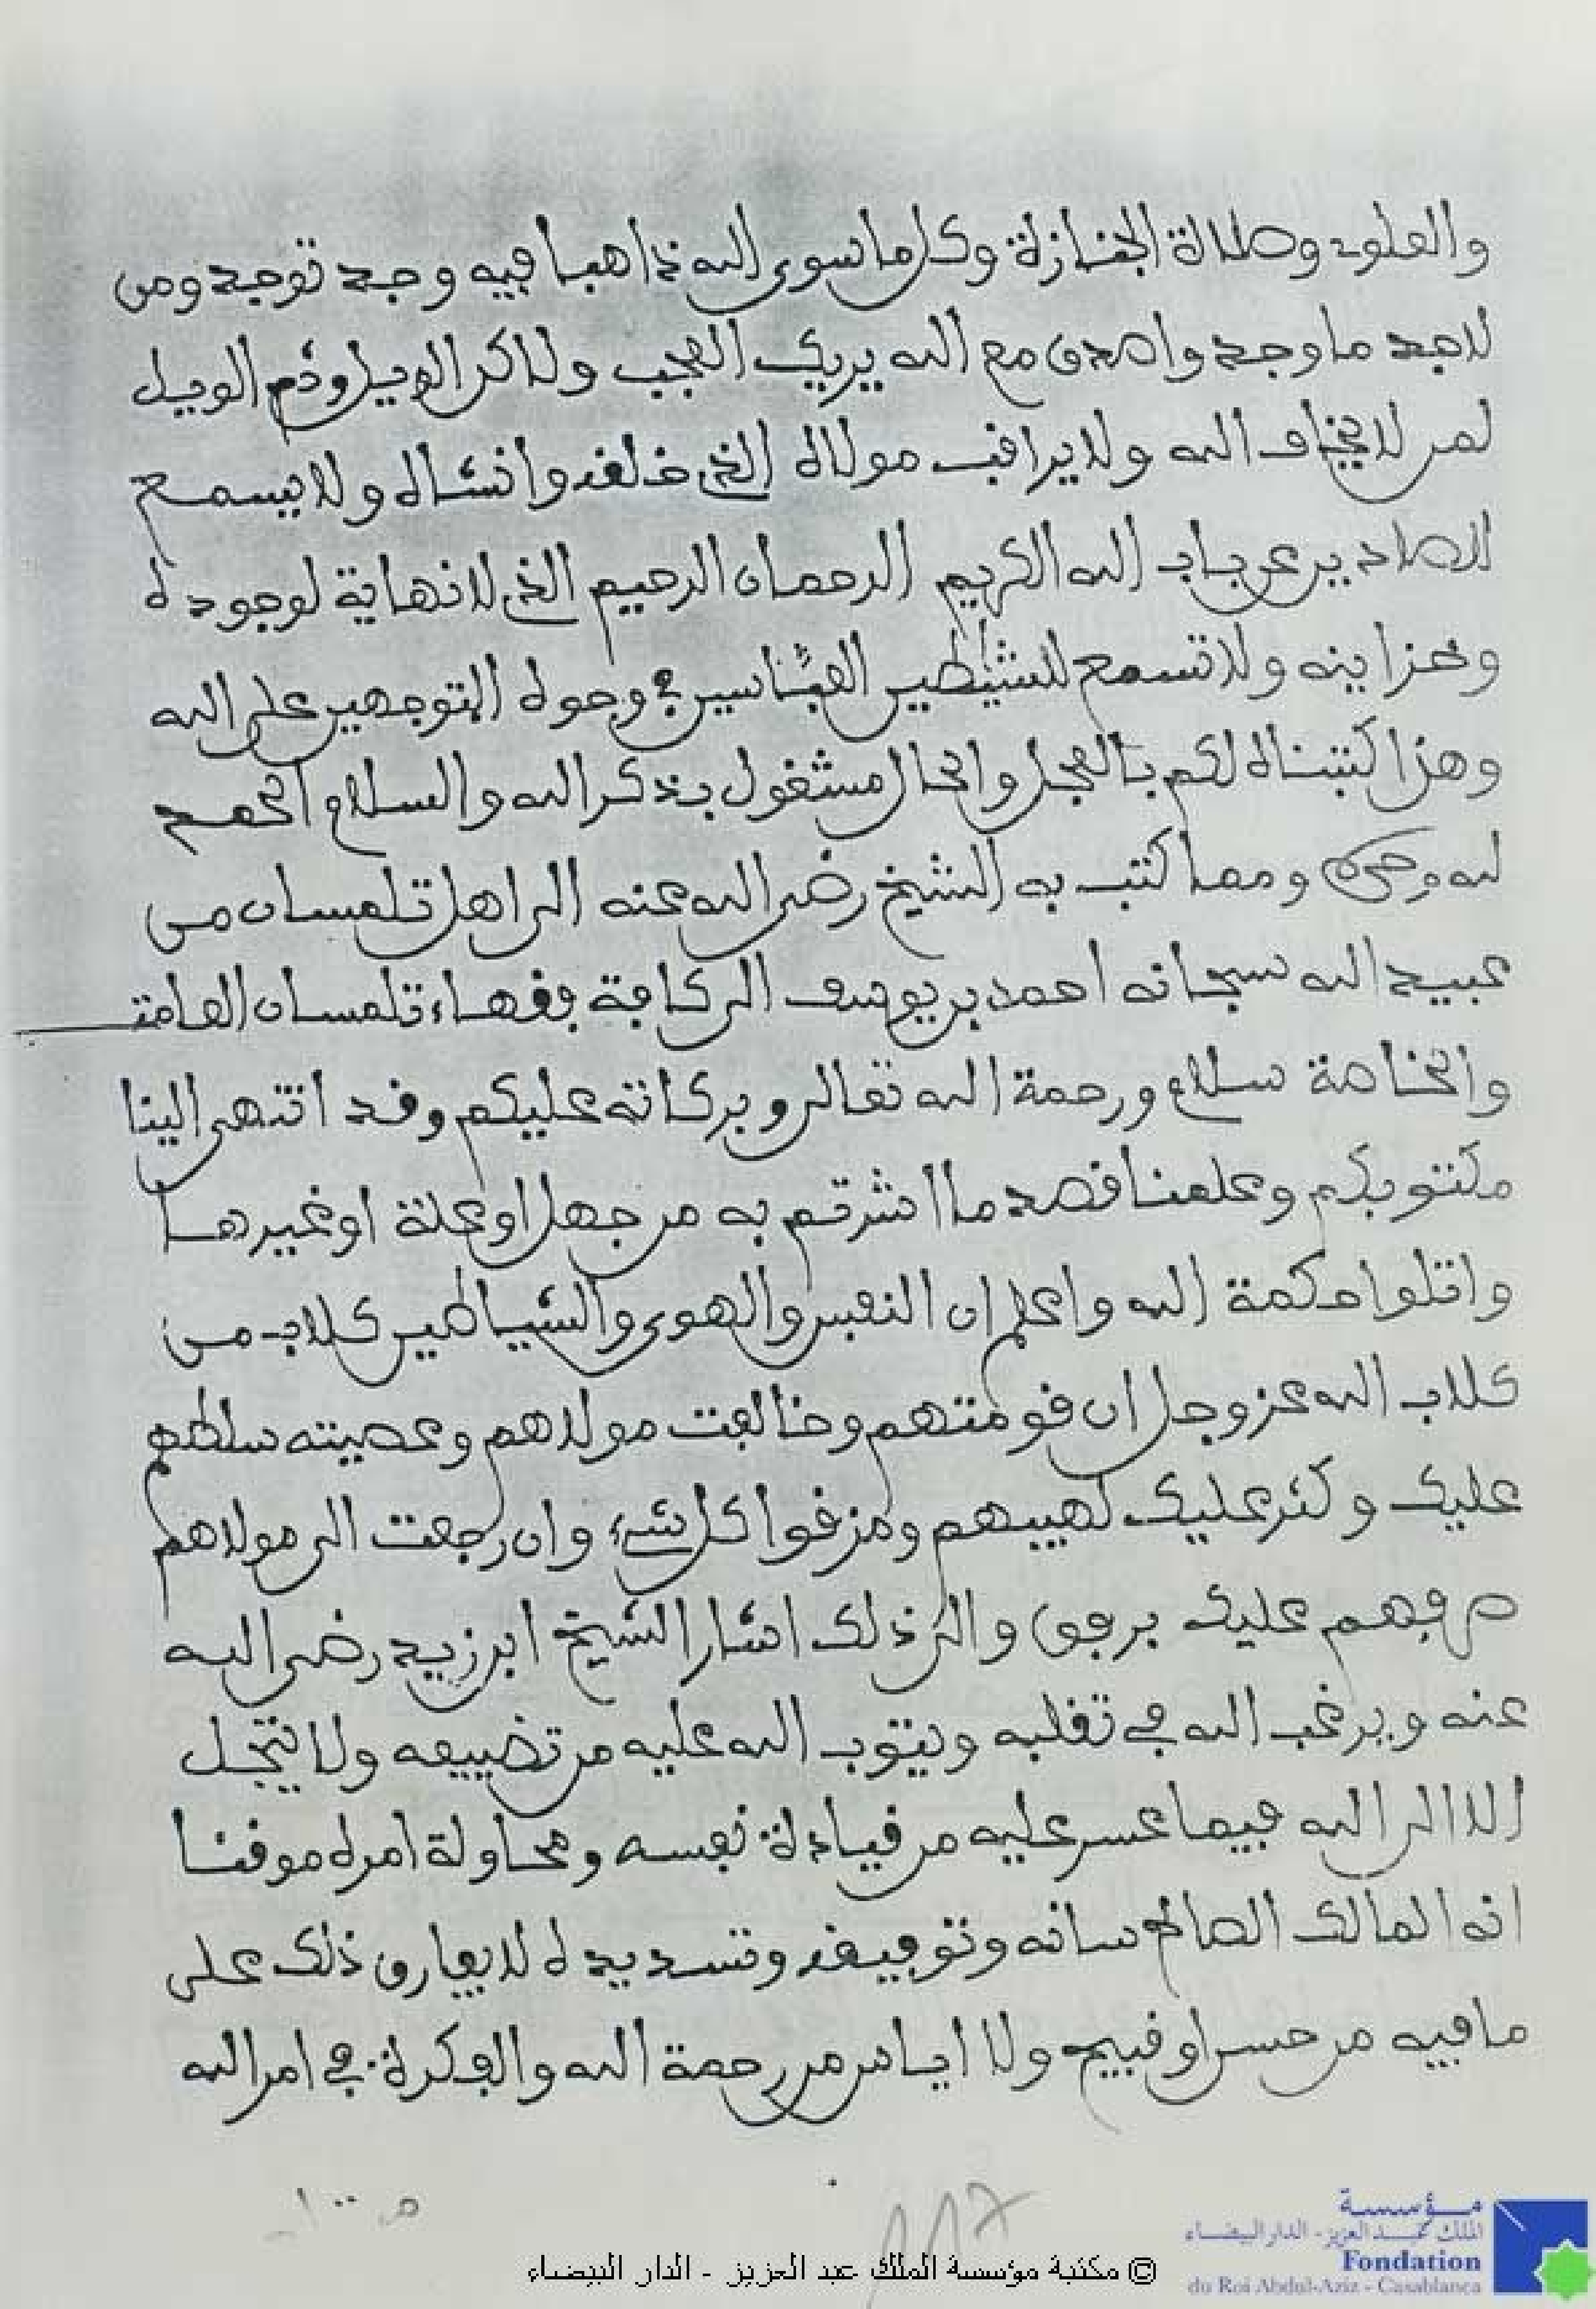 والعلوم وصلاة الجنازة وكل ما سوى الله ذاهبا فيه وجد توجد ومن
لا جد ما وجد واصدق مع الله يريك العجب ولاكن الويل وثم الويل
لمن لا يخاف الله ولا يراقب مولاه الذي خلقه وانشاه ولا يسمع
للصادين عن باب الله الكريم الرحمان الرحيم الذي لا نهاية لوجوده
وخزاينه ولا تسمع للشيطين في وجوه المتوجهين على الله
وهذا كتبناه لكم بالعجل والحال مشغول بذكر الله والسلام الحمد
لله وحده ومما كتب به الشيخ رضى الله عنه الى اهل تلمسان من
عبيد الله سبحانه احمد بن يوسف الى كافة فقهاء تلمسان العامة
والخاصة سلام ورحمة الله تعالى وبركاته عليكم وقد انتهى الينا
مكتوبكم وعلمنا قصد ما اشرتم به من جهل او علة او غيرهما
واتلوا حكمة الله واعلم ان النفس والهوى والشياطين كلاب من
كلاب الله عز وجل ان قومتهم وخالفت مولاهم وعصيته سلطهم
عليك وكثر عليك لهيبهم ومزقوا كل شيء وان رجعت الى مولاهم
صرفهم عليك برفق والى ذلك اشار الشيخ ابن زيد رضى الله
عنه ويرغب الله في تقلبه ويتوب الله عليه من تضييعه ولا يتجل
الا الى الله فيما عسر عليه من قيادة نفسه ومحاولة امره موقنا
انه المالك الصالح سانه وتوفيقه وتسديده لا يفارق ذلك على
ما فيه من حسن او قبيح ولا اياس من رحمة الله والفكرة في امر الله
117
ص 100
مؤسسة
الملك عبد العزيز - الدار البيضاء
Fondation
du Roi Abdul-Aziz - Casablanca
© مكتبة مؤسسة الملك عبد العزيز - الدار البيضاء